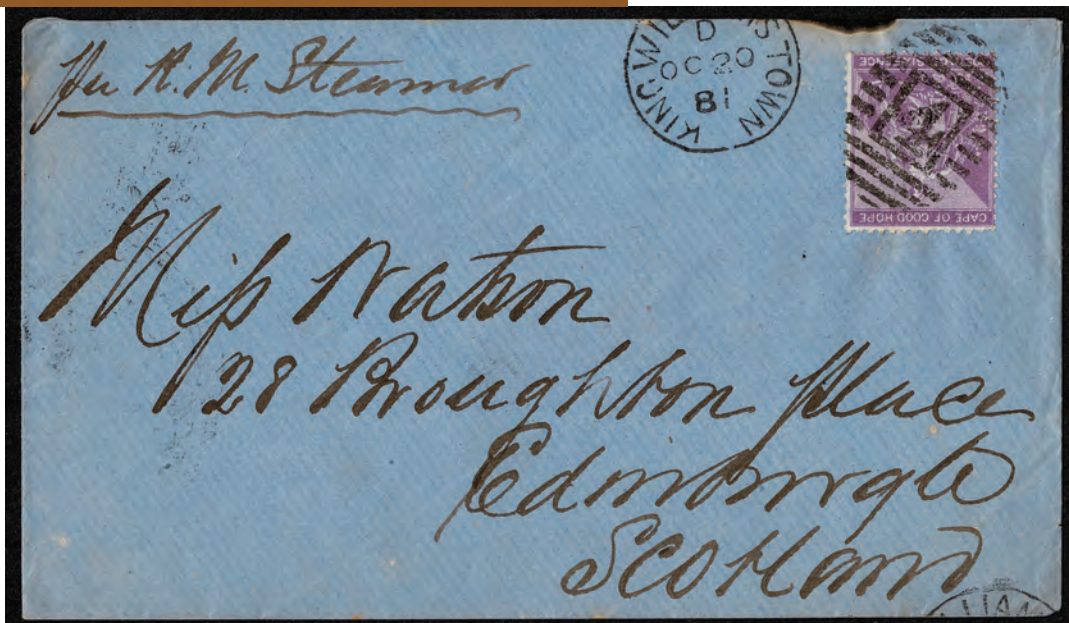 per R. M. Steamer
KING WILL MSTOWN
D
OC 20
81
POSTAGE SIX PENCE
CAPE OF GOOD HOPE
Miss Watson
28 Broughton Place
Edinburgh
Scotland
LLIAM